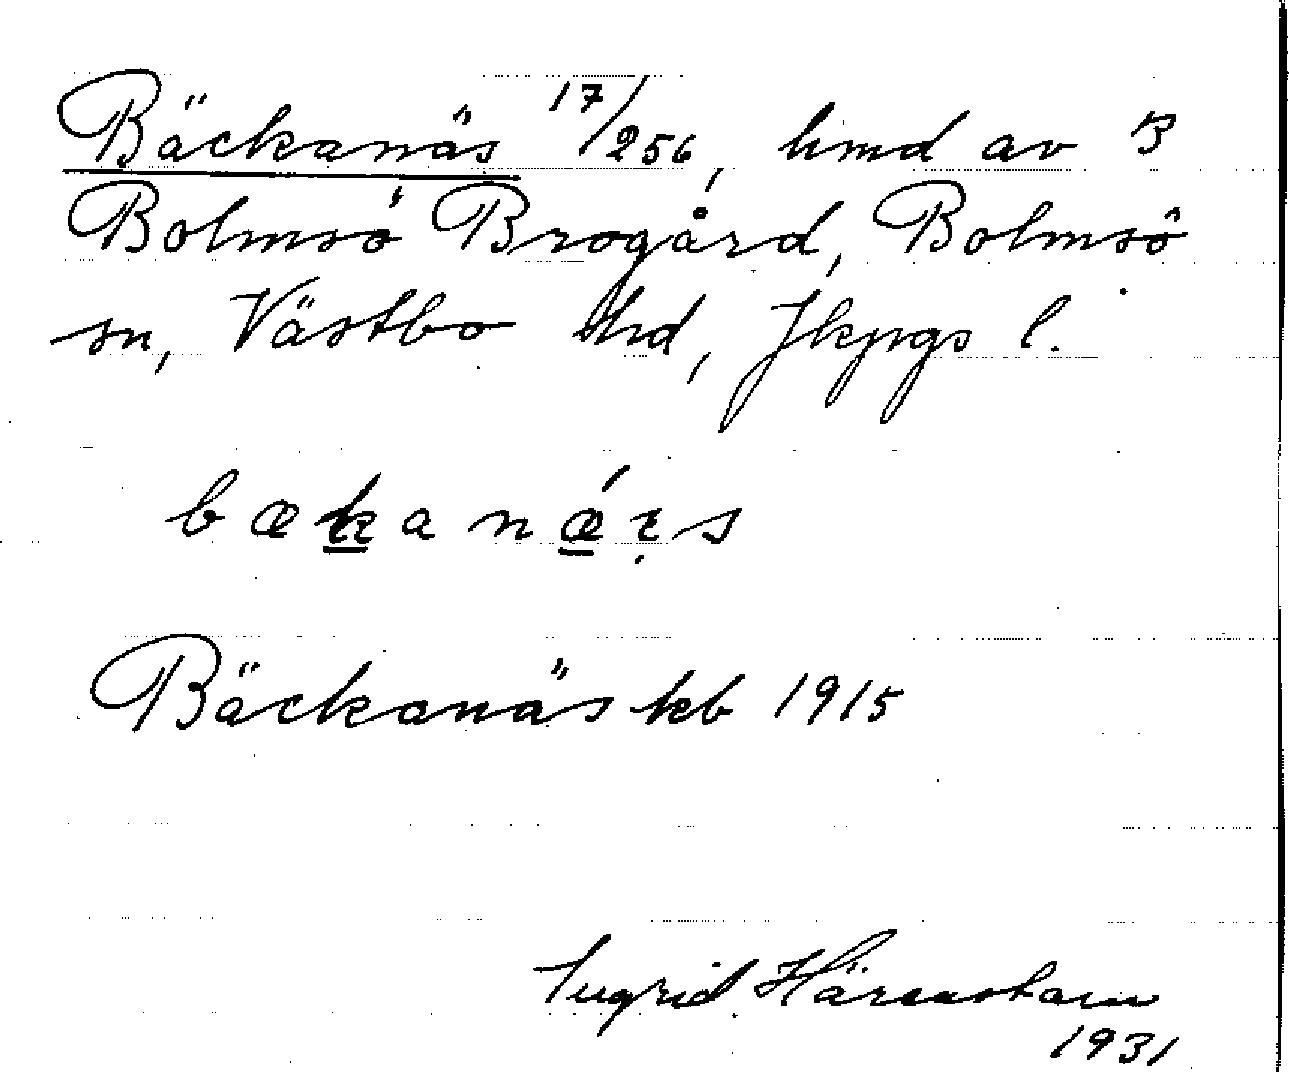 Bäckanäs 17/256, hmd av 3
Bolmsö Brogård, Bolmsö
sn, Västbo hd, Jkpgs l.
bækanǽ̱ꞇ̣s
Bäckanäs kb 1915
Ingrid Härenstam
1931